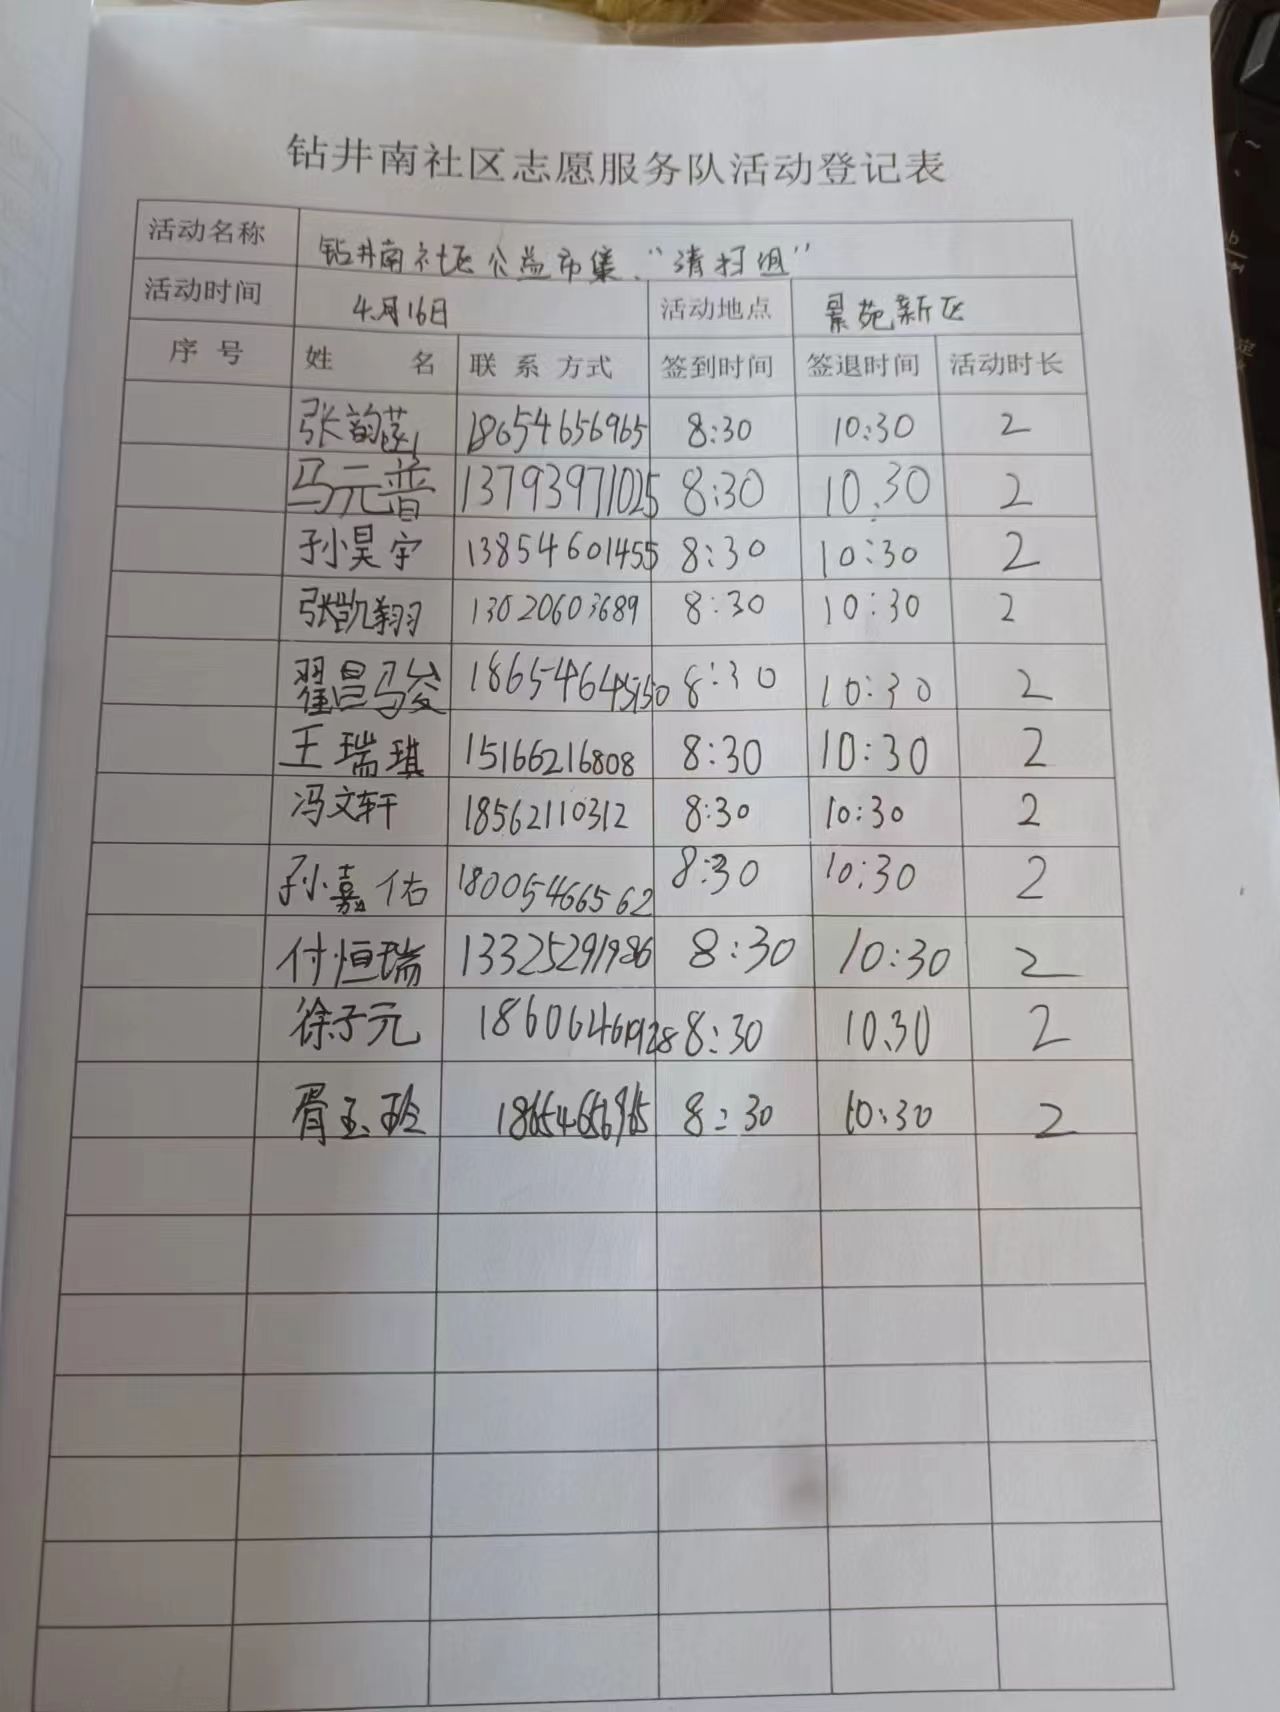 钻井南社区志愿服务队活动登记表
活动名称 钻井南社区公益市集、“清扫组”
活动时间 4月16日 活动地点 景苑新区
序 号 姓 名 联 系 方式 签到时间 签退时间 活动时长
张韵菡 18654656965 8:30 10:30 2
马元普 13793971025 8:30 10.30 2
孙昊宇 13854601455 8:30 10:30 2
张凯翔 13020603689 8:30 10:30 2
翟昌骏 18654645150 8:30 10:30 2
王瑞琪 15166216808 8:30 10:30 2
冯文轩 18562110312 8:30 10:30 2
孙嘉佑 18005466562 8:30 10:30 2
付恒瑞 13325291986 8:30 10:30 2
徐子元 18606461928 8:30 10.30 2
胥玉玲 18654656965 8:30 10:30 2